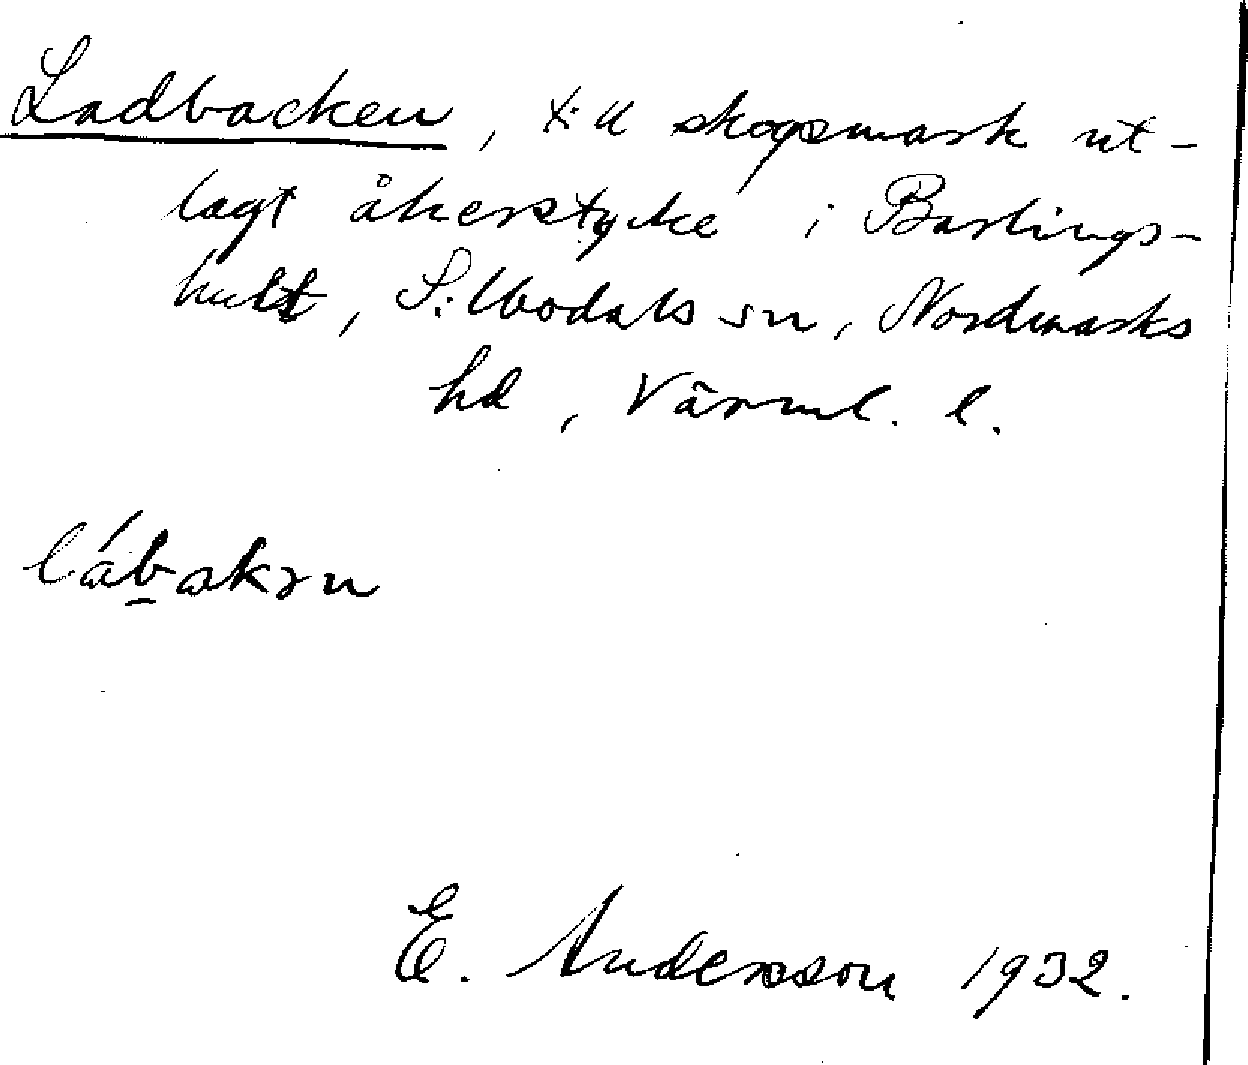 Ladbacken, till skogsmark ut-
lagt åkerstycke i Barlings-
hult, Silbodals sn, Nordmarks
hd, Värml. l.
lábakən
E. Andersson 1932.